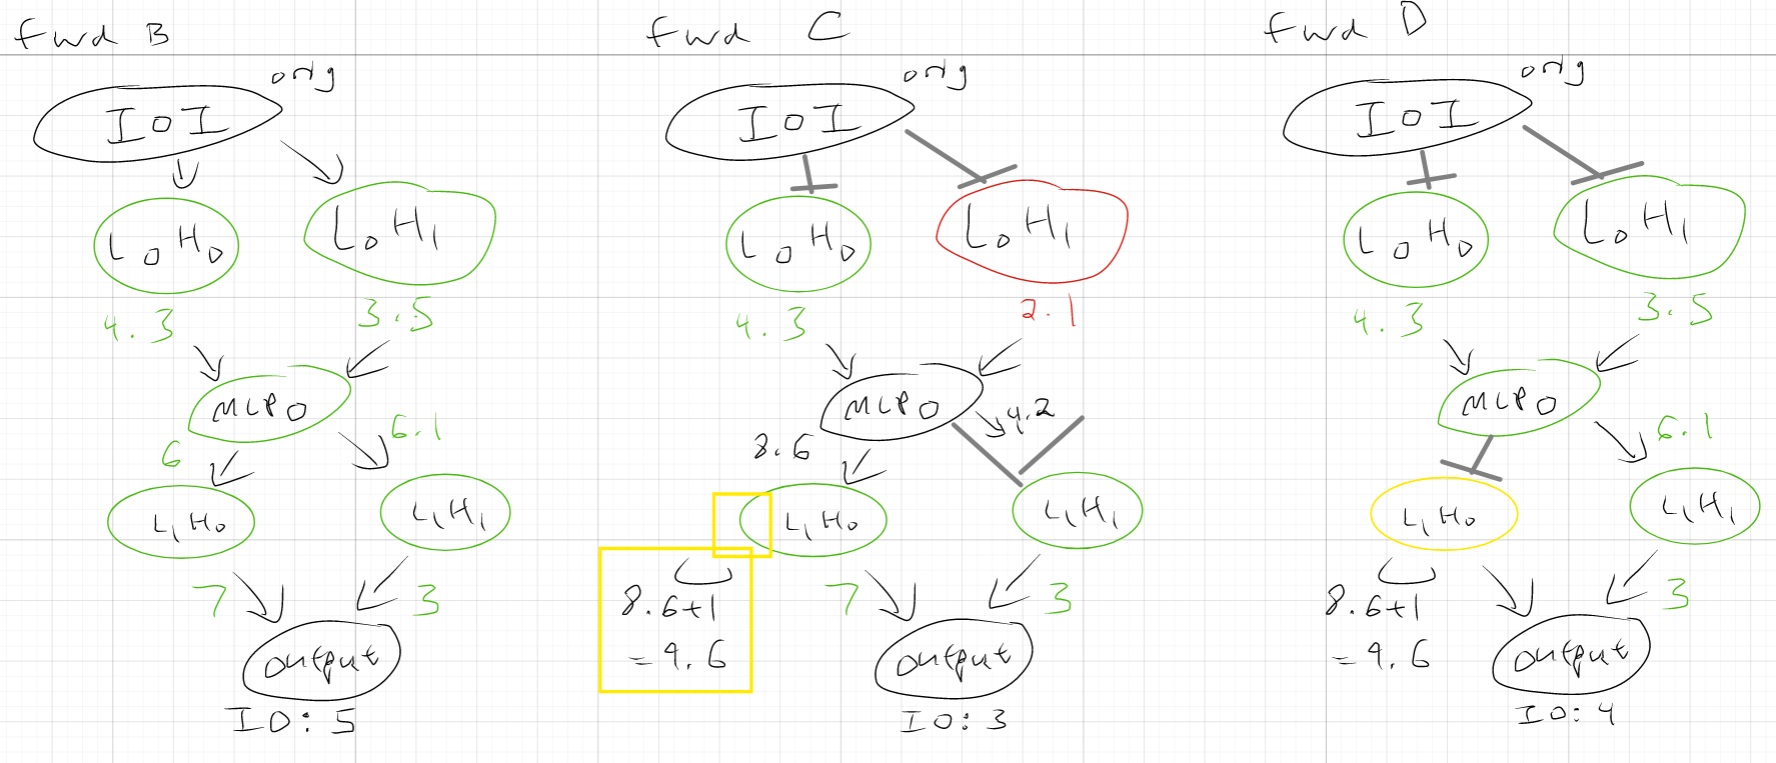 fwd B
orig
IOI
L0H0
L0H1
4.3
3.5
MLP0
6
6.1
L1H0
L1H1
7
3
output
IO: 5
fwd C
orig
IOI
L0H0
L0H1
4.3
2.1
MLP0
4.2
8.6
L1H0
L1H1
8.6+1
= 9.6
7
3
output
IO: 3
fwd D
orig
IOI
L0H0
L0H1
4.3
3.5
MLP0
6.1
L1H0
L1H1
8.6+1
= 9.6
3
output
IO: 4